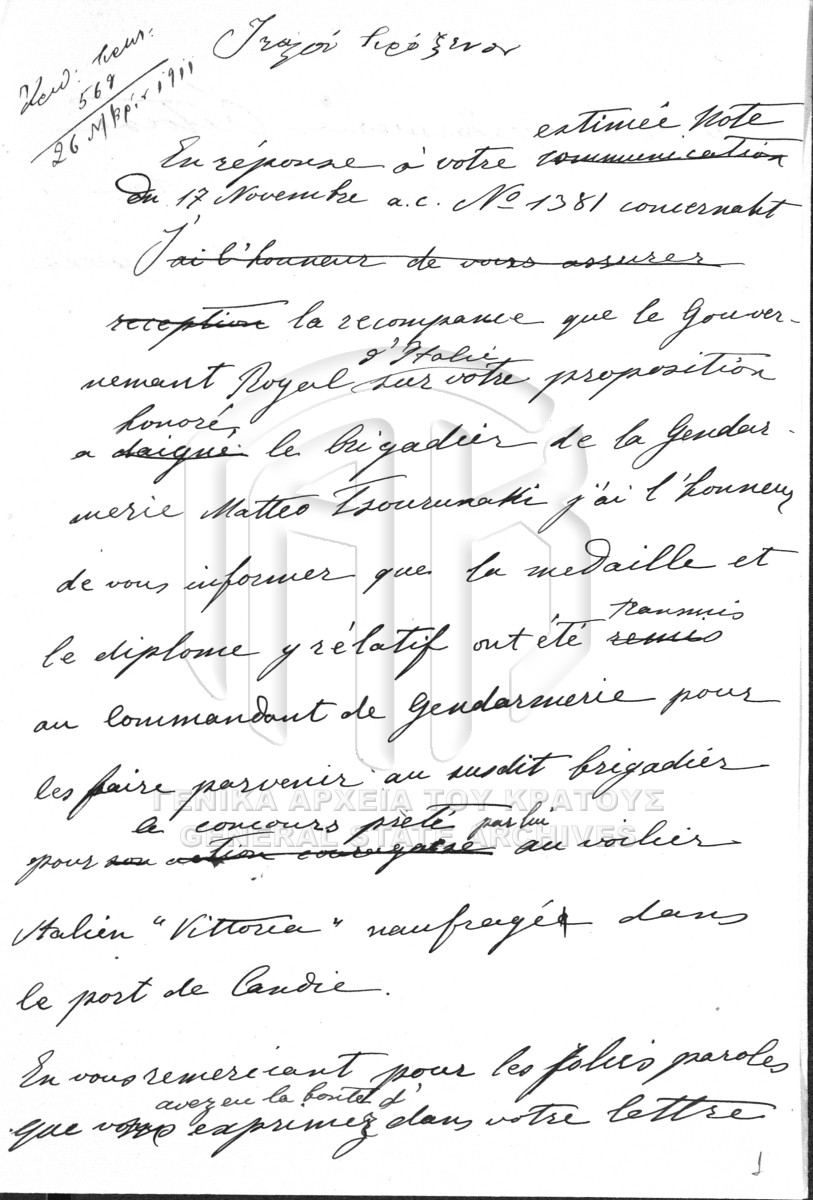 Ἰταλὸν Πρόξενον
568
26 Νβρίου 1911
estimée Note
En réponse à votre communication
du 17 Novembre a.c. No 1381 concernant
J'ai l'honneur de vous assurer
reception la recompance que le Gouver-
d'Italie
nemant Royal sur votre proposition
honoré
a daigné le brigadier de la Gendar-
merie Matteo Tsourunaki j'ai l'honneur
de vous informer que la medaille et
transmis
le diplome y rélatif ont été remis
au Commandant de Gendarmerie pour
les faire parvenir au susdit brigadier
ΓΕΝΙΚΑ ΑΡΧΕΙΑ ΤΟΥ ΚΡΑΤΟΥΣ
GENERAL STATE ARCHIVES
le concours prêté par lui
pour son action courageuse au voilier
Italien "Vittoria" naufragé dans
le port de Candie.
En vous remerciant pour les jolies paroles
avez eu la bonté d'
que vous exprimez dans votre lettre
1